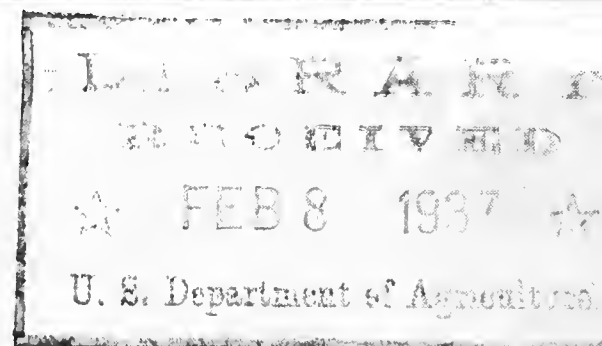 LIBRARY
RECEIVED
☆ FEB 8 1937 ☆
U. S. Department of Agriculture